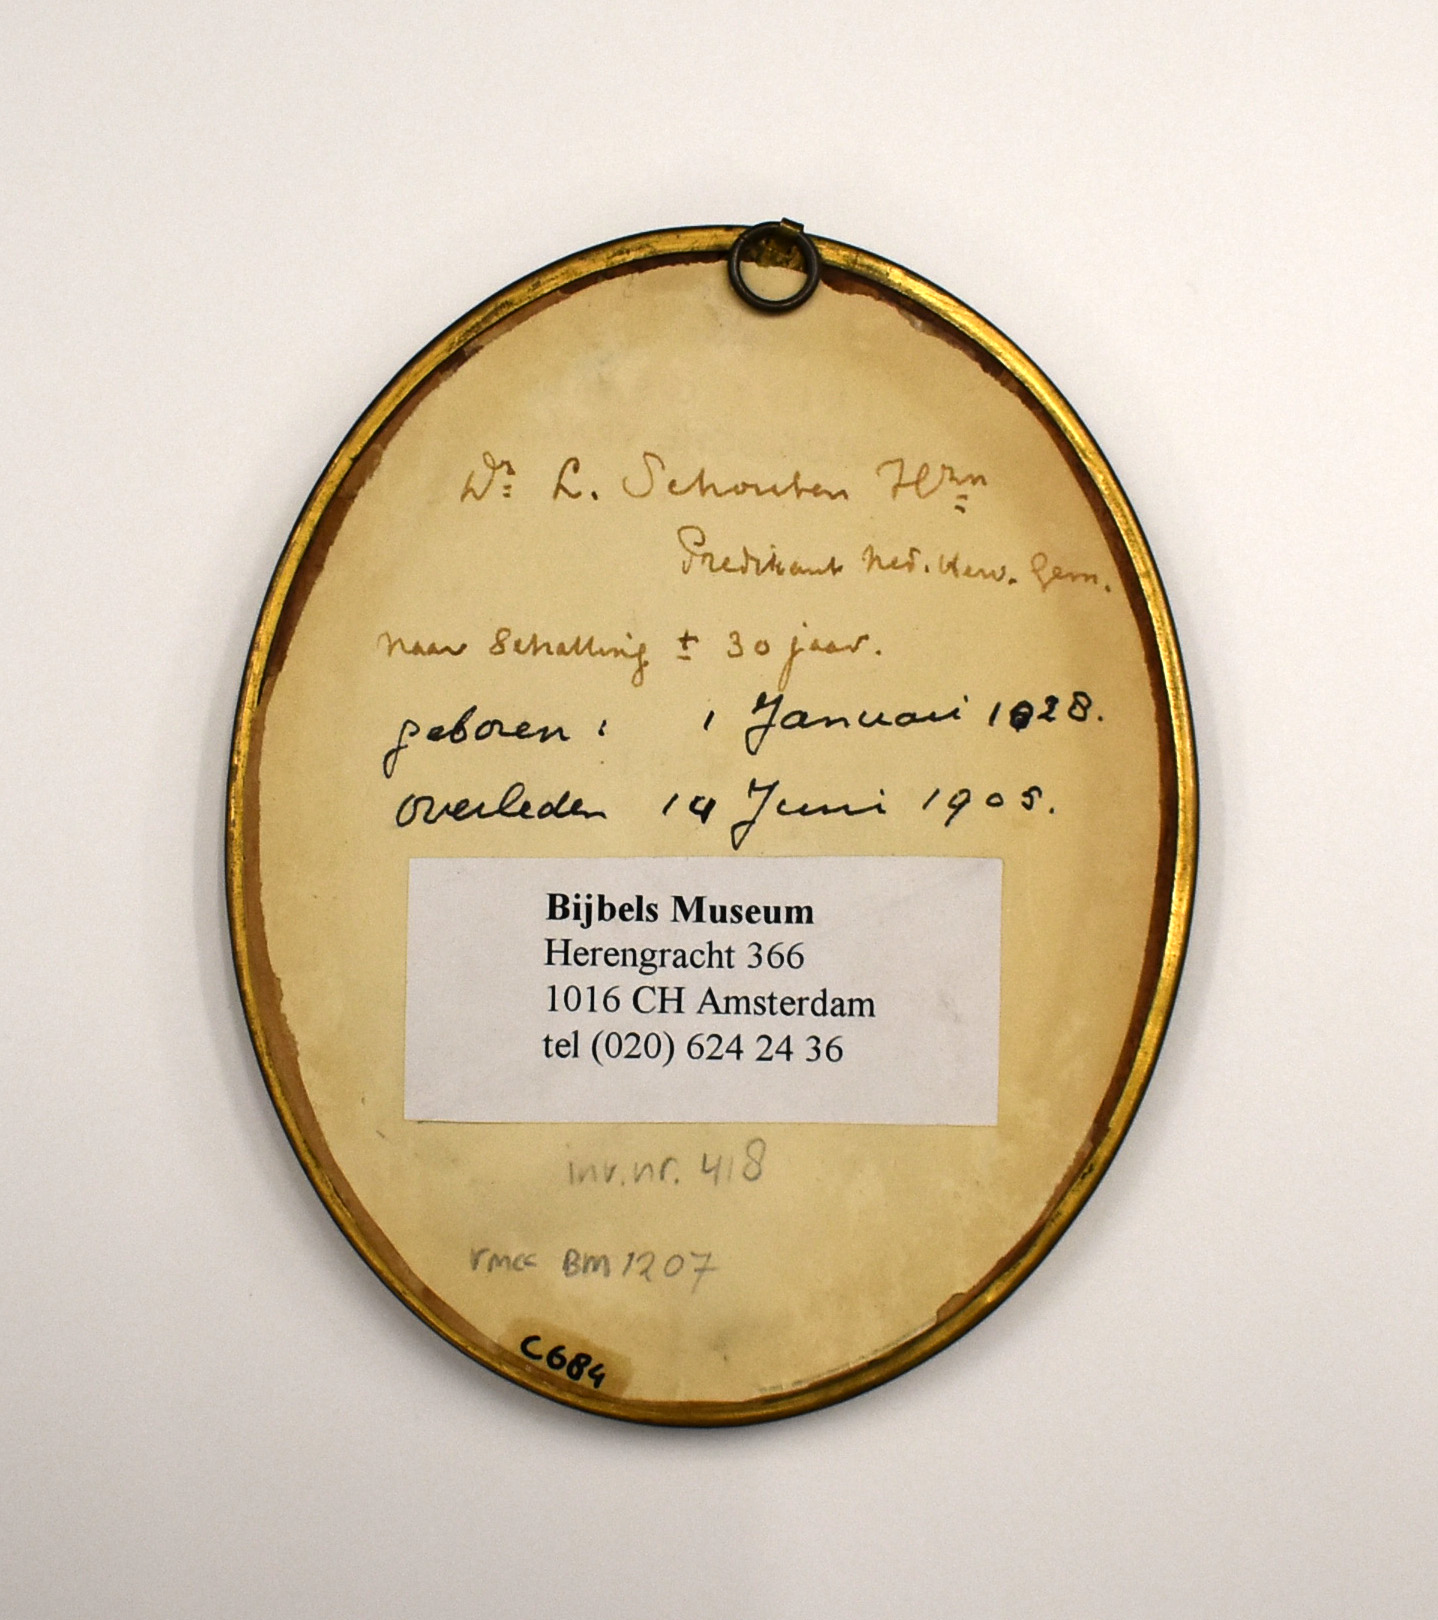 Dr. L. Schouten Hzn
Predikant Ned. Herv. Gem.
naar Schatting ± 30 jaar.
geboren: 1 Januari 1828.
overleden 14 Juni 1905.
Bijbels Museum
Herengracht 366
1016 CH Amsterdam
tel (020) 624 24 36
inv.nr. 418
rmcc BM1207
C684